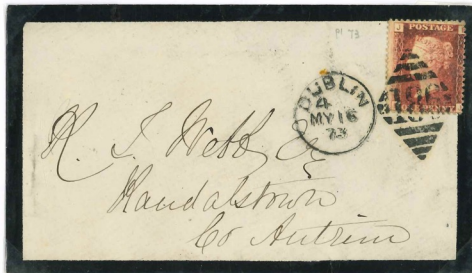 Pl 73
POSTAGE
J
DUBLIN
4
MY 16
73
186
K. T. Webb Esq
Randalstown
Co Antrim